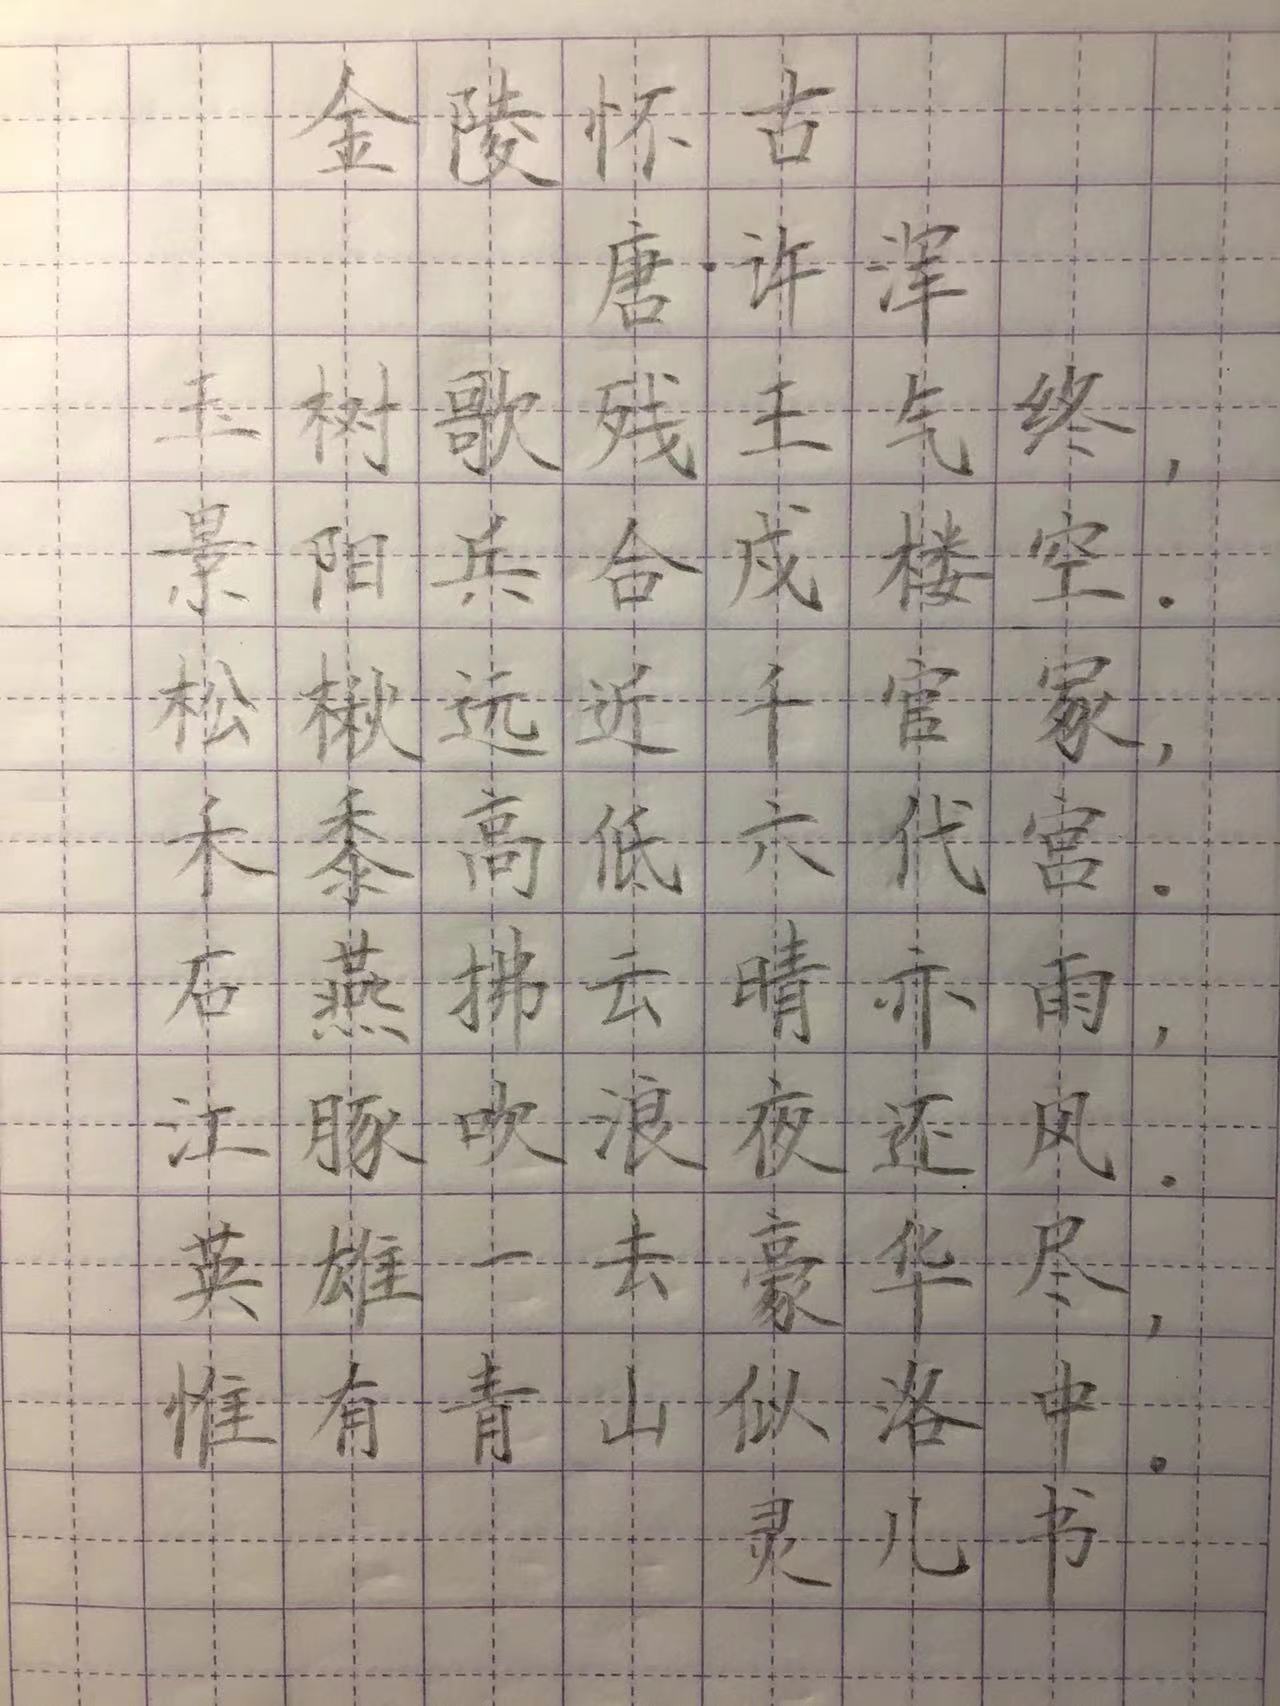 金陵怀古
唐·许浑
玉树歌残王气终,
景阳兵合戍楼空.
松楸远近千官冢,
禾黍高低六代宫.
石燕拂云晴亦雨,
江豚吹浪夜还风.
英雄一去豪华尽,
惟有青山似洛中.
灵儿书